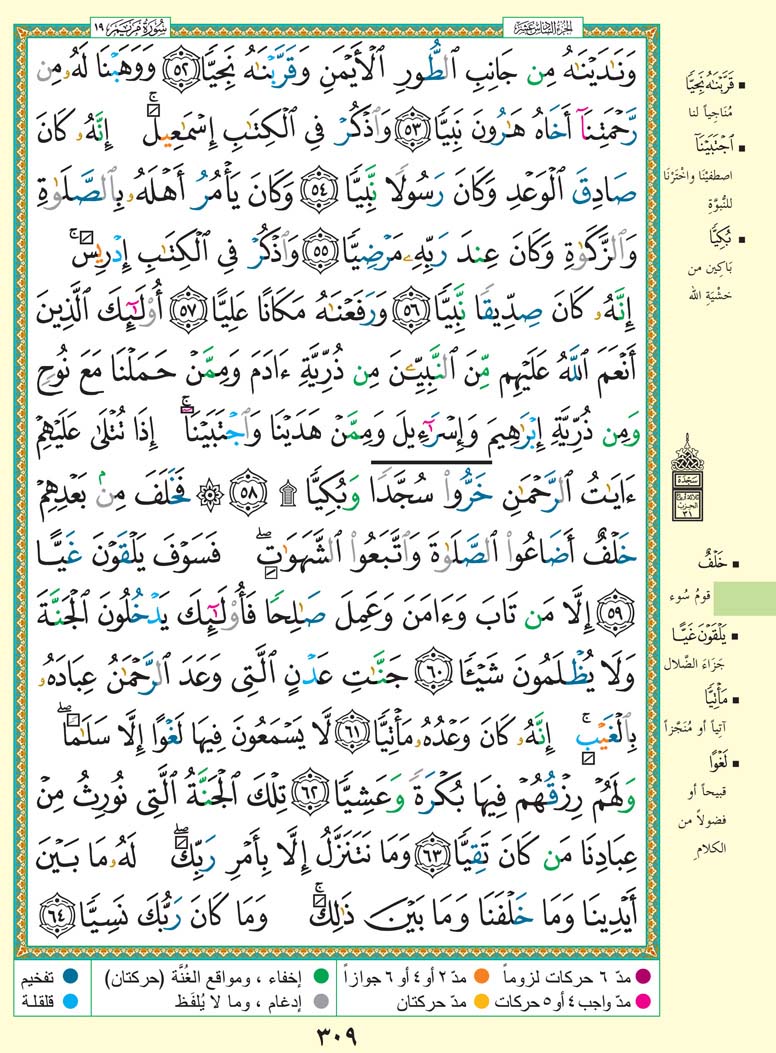 سُورَةُ مَرْيَم ١٩
الجزء السادس عشر
وَنَـٰدَيْنَـٰهُ مِن جَانِبِ ٱلطُّورِ ٱلْأَيْمَنِ وَقَرَّبْنَـٰهُ نَجِيًّا ٥٢ وَوَهَبْنَا لَهُۥ مِن
رَّحْمَتِنَآ أَخَاهُ هَـٰرُونَ نَبِيًّا ٥٣ وَٱذْكُرْ فِى ٱلْكِتَـٰبِ إِسْمَـٰعِيلَ ۚ إِنَّهُۥ كَانَ
صَادِقَ ٱلْوَعْدِ وَكَانَ رَسُولًا نَّبِيًّا ٥٤ وَكَانَ يَأْمُرُ أَهْلَهُۥ بِٱلصَّلَوٰةِ
وَٱلزَّكَوٰةِ وَكَانَ عِندَ رَبِّهِۦ مَرْضِيًّا ٥٥ وَٱذْكُرْ فِى ٱلْكِتَـٰبِ إِدْرِيسَ ۚ
إِنَّهُۥ كَانَ صِدِّيقًا نَّبِيًّا ٥٦ وَرَفَعْنَـٰهُ مَكَانًا عَلِيًّا ٥٧ أُو۟لَـٰٓئِكَ ٱلَّذِينَ
أَنْعَمَ ٱللَّهُ عَلَيْهِم مِّنَ ٱلنَّبِيِّـۧنَ مِن ذُرِّيَّةِ ءَادَمَ وَمِمَّنْ حَمَلْنَا مَعَ نُوحٍ
وَمِن ذُرِّيَّةِ إِبْرَٰهِيمَ وَإِسْرَٰٓءِيلَ وَمِمَّنْ هَدَيْنَا وَٱجْتَبَيْنَآ ۚ إِذَا تُتْلَىٰ عَلَيْهِمْ
ءَايَـٰتُ ٱلرَّحْمَـٰنِ خَرُّوا۟ سُجَّدًا وَبُكِيًّا ۩ ٥٨ ۞ فَخَلَفَ مِنۢ بَعْدِهِمْ
خَلْفٌ أَضَاعُوا۟ ٱلصَّلَوٰةَ وَٱتَّبَعُوا۟ ٱلشَّهَوَٰتِ ۖ فَسَوْفَ يَلْقَوْنَ غَيًّا
٥٩ إِلَّا مَن تَابَ وَءَامَنَ وَعَمِلَ صَـٰلِحًا فَأُو۟لَـٰٓئِكَ يَدْخُلُونَ ٱلْجَنَّةَ
وَلَا يُظْلَمُونَ شَيْـًٔا ٦٠ جَنَّـٰتِ عَدْنٍ ٱلَّتِى وَعَدَ ٱلرَّحْمَـٰنُ عِبَادَهُۥ
بِٱلْغَيْبِ ۚ إِنَّهُۥ كَانَ وَعْدُهُۥ مَأْتِيًّا ٦١ لَّا يَسْمَعُونَ فِيهَا لَغْوًا إِلَّا سَلَـٰمًا ۖ
وَلَهُمْ رِزْقُهُمْ فِيهَا بُكْرَةً وَعَشِيًّا ٦٢ تِلْكَ ٱلْجَنَّةُ ٱلَّتِى نُورِثُ مِنْ
عِبَادِنَا مَن كَانَ تَقِيًّا ٦٣ وَمَا نَتَنَزَّلُ إِلَّا بِأَمْرِ رَبِّكَ ۖ لَهُۥ مَا بَيْنَ
أَيْدِينَا وَمَا خَلْفَنَا وَمَا بَيْنَ ذَٰلِكَ ۚ وَمَا كَانَ رَبُّكَ نَسِيًّا ٦٤
■ قَرَّبْنَـٰهُ نَجِيًّا
مُنَاجِياً لنا
■ ٱجْتَبَيْنَآ
اصطفيْنَا واخْتَرْنَا
للنُّبُوَّةِ
■ بُكِيًّا
بَاكِين من
خشْيَةِ الله
سجدة
■ خَلْفٌ
قومُ سُوء
■ يَلْقَوْنَ غَيًّا
جَزَاءَ الضَّلال
■ مَأْتِيًّا
آتياً أو مُنَجَّزاً
■ لَغْوًا
قبيحاً أو
فضولاً من
الكلامِ
مدّ ٦ حركات لزوماً
مدّ ٢ أو ٤ أو ٦ جوازاً
إخفاء ، ومواقع الغُنَّة (حركتان)
تفخيم
مدّ واجب ٤ أو ٥ حركات
مدّ حركتان
إدغام ، وما لا يُلفَظ
قلقلة
٣٠٩